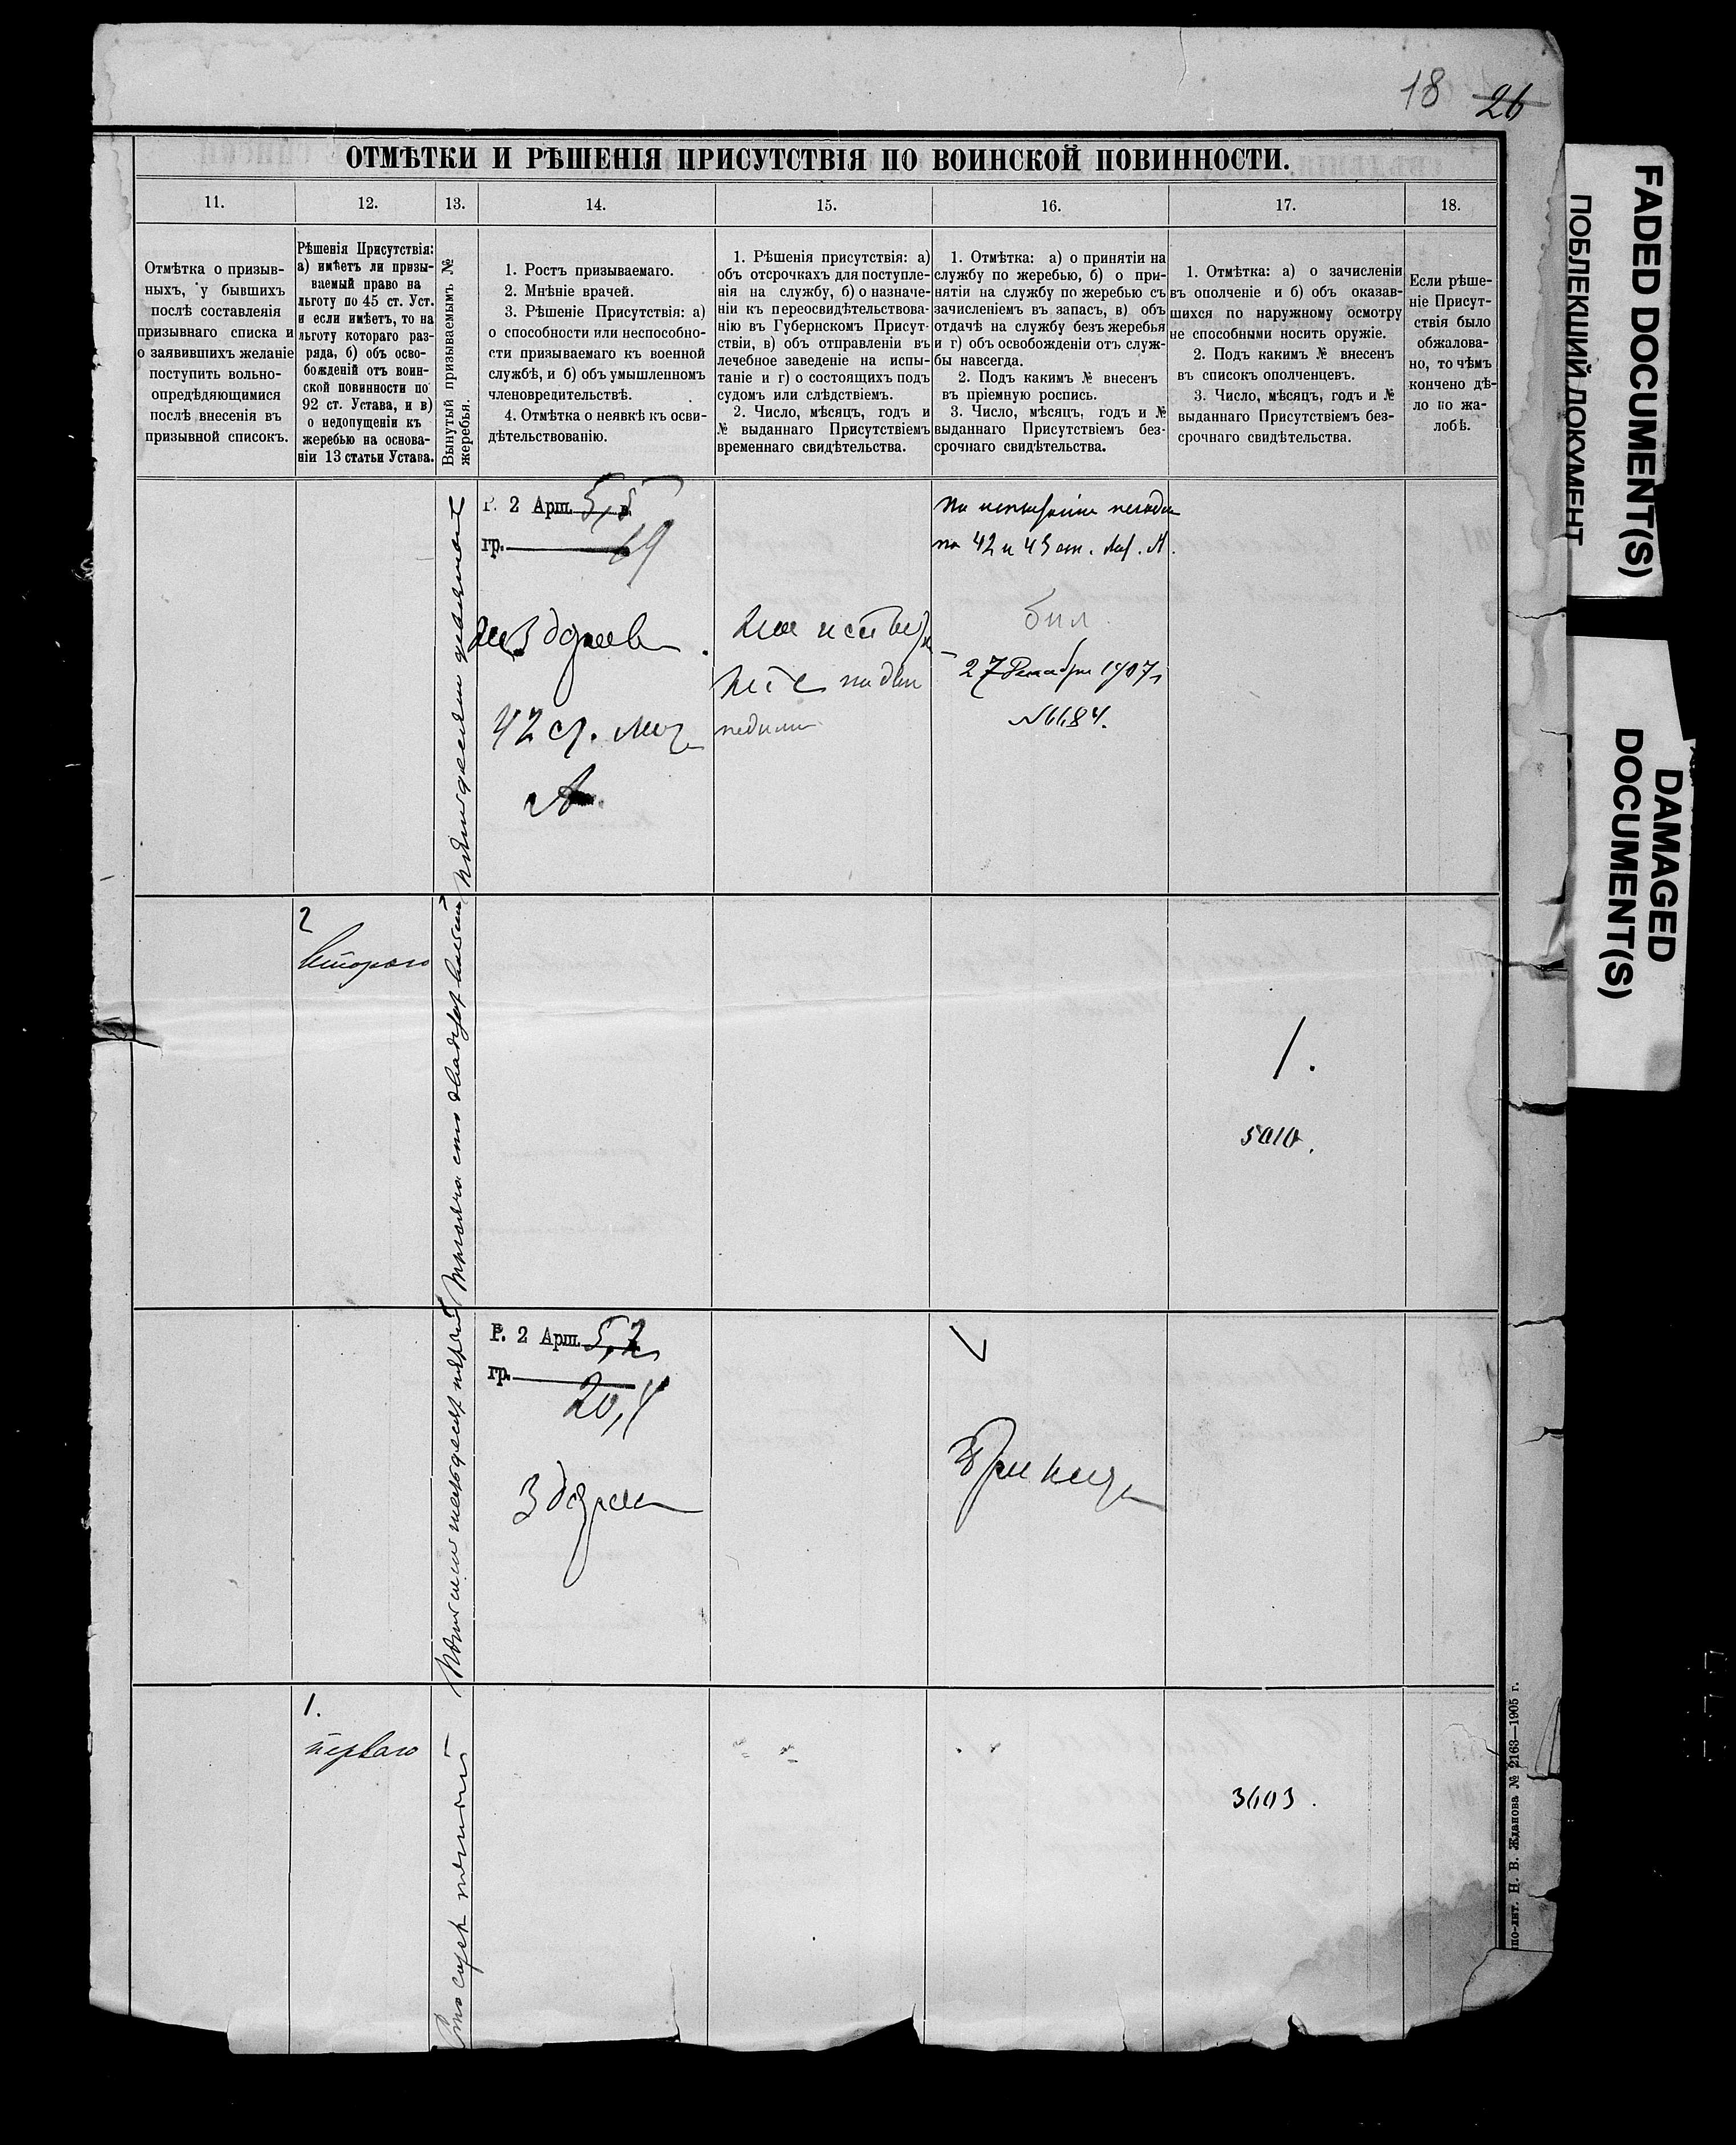 18 26
ОТМѢТКИ И РѢШЕНІЯ ПРИСУТСТВІЯ ПО ВОИНСКОЙ ПОВИННОСТИ.
11. 12. 13. 14. 15. 16. 17. 18.
Отмѣтка о призыв-
ныхъ, у бывшихъ
послѣ составленія
призывнаго списка и
о заявившихъ желаніе
поступить вольно-
опредѣляющимися
послѣ внесенія въ
призывной списокъ.
Рѣшенія Присутствія:
а) имѣетъ ли призы-
ваемый право на
льготу по 45 ст. Уст.
и если имѣетъ, то на
льготу котораго раз-
ряда, б) объ осво-
божденій отъ воин-
ской повинности по
92 ст. Устава, и в)
о недопущеніи къ
жеребью на основа-
ніи 13 статьи Устава.
Вынутый призываемымъ №
жеребья.
1. Ростъ призываемаго.
2. Мнѣніе врачей.
3. Рѣшеніе Присутствія: а)
о способности или неспособно-
сти призываемаго къ военной
службѣ, и б) объ умышленномъ
членовредительствѣ.
4. Отмѣтка о неявкѣ къ осви-
дѣтельствованію.
1. Рѣшенія присутствія: а)
объ отсрочкахъ для поступле-
нія на службу, б) о назначе-
ніи къ переосвидѣтельствова-
нію въ Губернскомъ Присут-
ствіи, в) объ отправленіи въ
лечебное заведеніе на испы-
таніе и г) о состоящихъ подъ
судомъ или слѣдствіемъ.
2. Число, мѣсяцъ, годъ и
№ выданнаго Присутствіемъ
временнаго свидѣтельства.
1. Отмѣтка: а) о принятіи на
службу по жеребью, б) о при-
нятіи на службу по жеребью съ
зачисленіемъ въ запасъ, в) объ
отдачѣ на службу безъ жеребья
и г) объ освобожденіи отъ служ-
бы навсегда.
2. Подъ какимъ № внесенъ
въ пріемную роспись.
3. Число, мѣсяцъ, годъ и №
выданнаго Присутствіемъ без-
срочнаго свидѣтельства.
1. Отмѣтка: а) о зачисленіи
въ ополченіе и б) объ оказав-
шихся по наружному осмотру
не способными носить оружіе.
2. Подъ какимъ № внесенъ
въ списокъ ополченцевъ.
3. Число, мѣсяцъ, годъ и №
выданнаго Присутствіемъ без-
срочнаго свидѣтельства.
Если рѣше-
ніе Присут-
ствія было
обжалова-
но, то чѣмъ
кончено дѣ-
ло по жа-
лобѣ.
Р. 2 Арш. 5,5 в.
гр. 19
42 ст. лит
А
27 Декабря 1907 г
№ 6684.
2
Второго
Триста сто двадцать
1.
5010.
Р. 2 Арш. 5,2
гр. 20,4
Здоров
Принят
1.
перваго
Сто сорок
3603.
по-лит. Н. В. Жданова № 2163—1905 г.
FADED DOCUMENT(S)
ПОБЛЕКШИЙ ДОКУМЕНТ
DAMAGED
DOCUMENT(S)